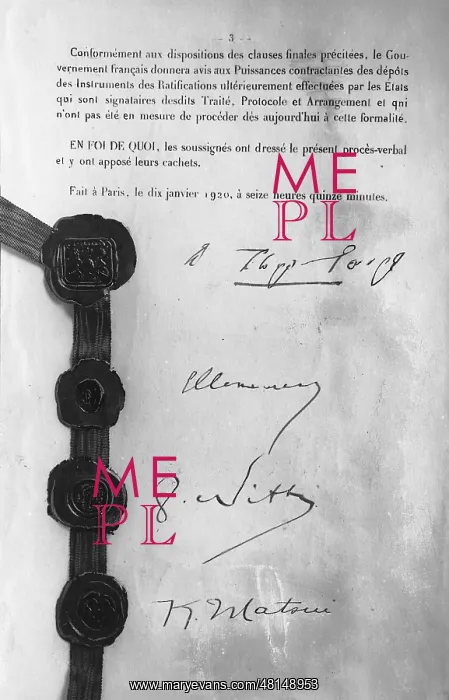 - 3 -
Conformément aux dispositions des clauses finales précitées, le Gou-
vernement français donnera avis aux Puissances contractantes des dépôts
des Instruments des Ratifications ultérieurement effectuées par les Etats
qui sont signataires desdits Traité, Protocole et Arrangement et qni
n'ont pas été en mesure de procéder dès aujourd'hui à cette formalité.
EN FOI DE QUOI, les soussignés ont dressé le présent procès-verbal
et y ont apposé leurs cachets.
Fait à Paris, le dix janvier 1920, à seize heures quinze minutes.
ME
PL
Clemenceau
ME
PL
K. Matsui
www.maryevans.com/48148953